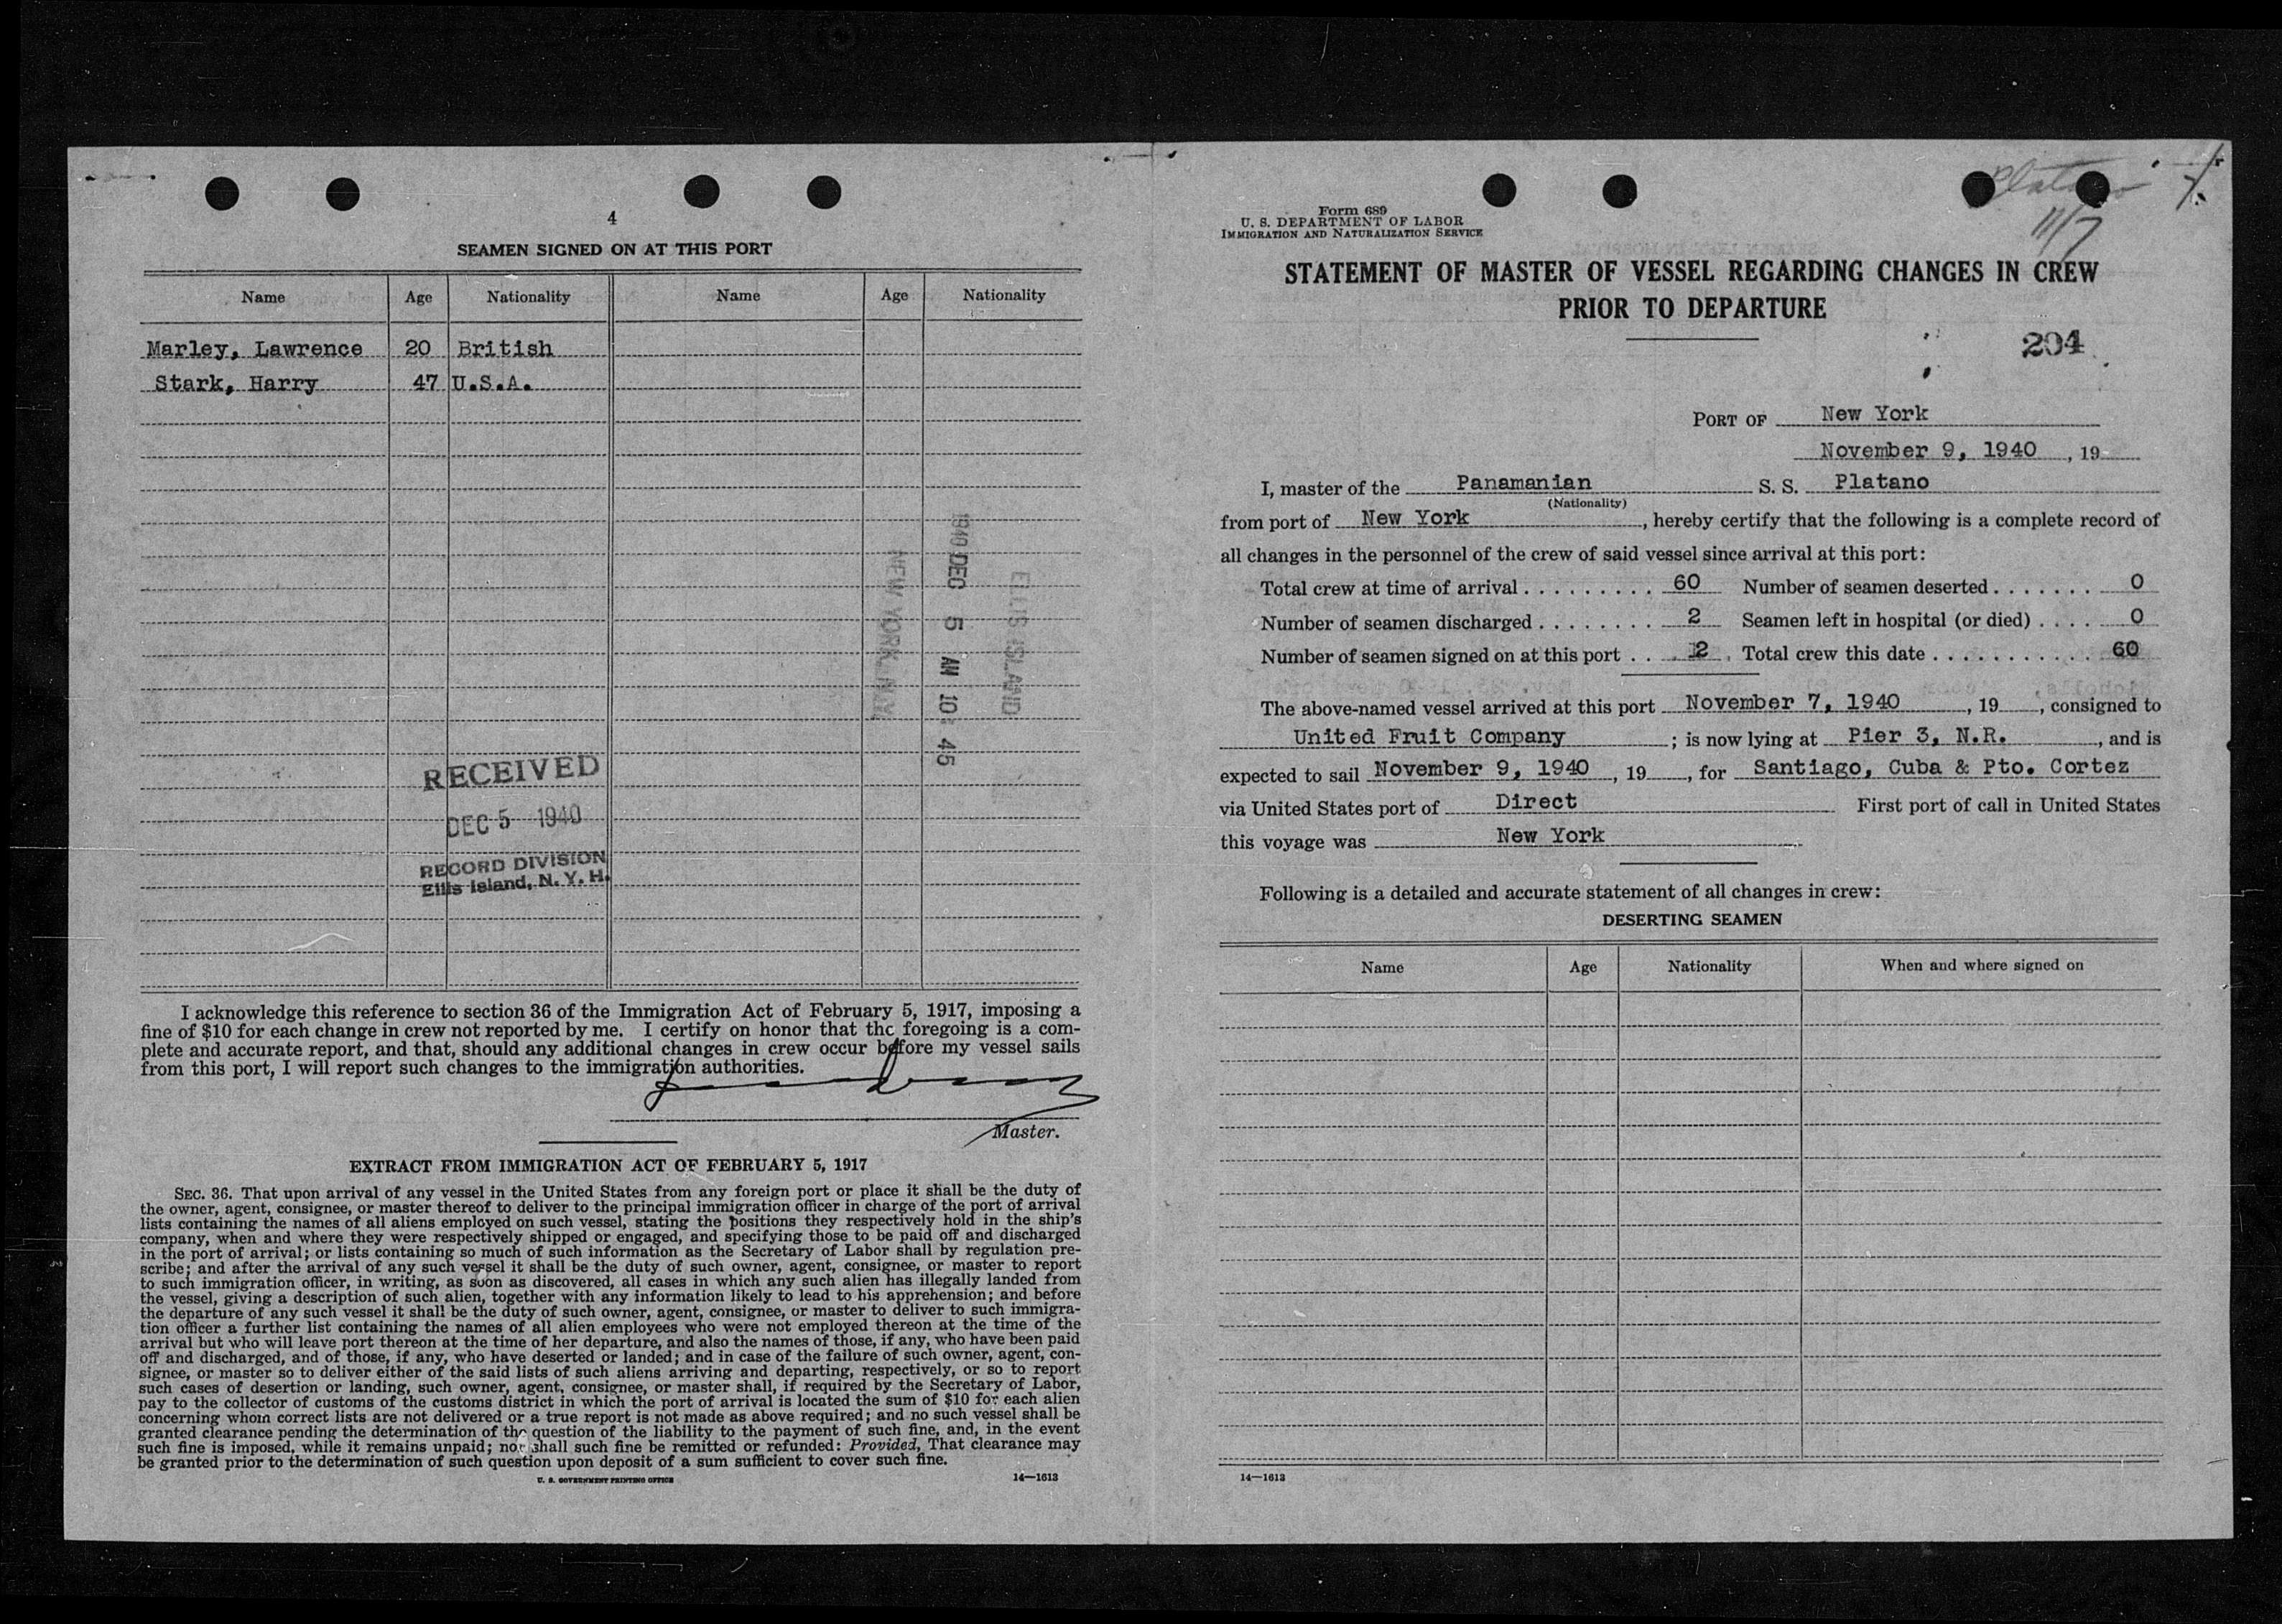 4
SEAMEN SIGNED ON AT THIS PORT
Name Age Nationality Name Age Nationality
Marley, Lawrence 20 British
Stark, Harry 47 U.S.A.
ELLIS ISLAND
1940 DEC 5 AM 10: 45
NEW YORK, N.Y.
RECEIVED
DEC 5 1940
RECORD DIVISION
Ellis Island, N. Y. H.
I acknowledge this reference to section 36 of the Immigration Act of February 5, 1917, imposing a
fine of $10 for each change in crew not reported by me. I certify on honor that the foregoing is a com-
plete and accurate report, and that, should any additional changes in crew occur before my vessel sails
from this port, I will report such changes to the immigration authorities.
Master.
EXTRACT FROM IMMIGRATION ACT OF FEBRUARY 5, 1917
SEC. 36. That upon arrival of any vessel in the United States from any foreign port or place it shall be the duty of
the owner, agent, consignee, or master thereof to deliver to the principal immigration officer in charge of the port of arrival
lists containing the names of all aliens employed on such vessel, stating the positions they respectively hold in the ship's
company, when and where they were respectively shipped or engaged, and specifying those to be paid off and discharged
in the port of arrival; or lists containing so much of such information as the Secretary of Labor shall by regulation pre-
scribe; and after the arrival of any such vessel it shall be the duty of such owner, agent, consignee, or master to report
to such immigration officer, in writing, as soon as discovered, all cases in which any such alien has illegally landed from
the vessel, giving a description of such alien, together with any information likely to lead to his apprehension; and before
the departure of any such vessel it shall be the duty of such owner, agent, consignee, or master to deliver to such immigra-
tion officer a further list containing the names of all alien employees who were not employed thereon at the time of the
arrival but who will leave port thereon at the time of her departure, and also the names of those, if any, who have been paid
off and discharged, and of those, if any, who have deserted or landed; and in case of the failure of such owner, agent, con-
signee, or master so to deliver either of the said lists of such aliens arriving and departing, respectively, or so to report
such cases of desertion or landing, such owner, agent, consignee, or master shall, if required by the Secretary of Labor,
pay to the collector of customs of the customs district in which the port of arrival is located the sum of $10 for each alien
concerning whom correct lists are not delivered or a true report is not made as above required; and no such vessel shall be
granted clearance pending the determination of the question of the liability to the payment of such fine, and, in the event
such fine is imposed, while it remains unpaid; nor shall such fine be remitted or refunded: Provided, That clearance may
be granted prior to the determination of such question upon deposit of a sum sufficient to cover such fine.
U. S. GOVERNMENT PRINTING OFFICE 14—1613
Platano
11/7
Form 689
U. S. DEPARTMENT OF LABOR
IMMIGRATION AND NATURALIZATION SERVICE
STATEMENT OF MASTER OF VESSEL REGARDING CHANGES IN CREW
PRIOR TO DEPARTURE
204
PORT OF New York
November 9, 1940, 19
I, master of the Panamanian S. S. Platano
(Nationality)
from port of New York, hereby certify that the following is a complete record of
all changes in the personnel of the crew of said vessel since arrival at this port:
Total crew at time of arrival . . . . . . . . . 60 Number of seamen deserted . . . . . . . 0
Number of seamen discharged . . . . . . . . 2 Seamen left in hospital (or died) . . . . 0
Number of seamen signed on at this port . . 2 Total crew this date . . . . . . . . . . . 60
The above-named vessel arrived at this port November 7, 1940, 19, consigned to
United Fruit Company; is now lying at Pier 3, N.R., and is
expected to sail November 9, 1940, 19, for Santiago, Cuba & Pto. Cortez
via United States port of Direct First port of call in United States
this voyage was New York
Following is a detailed and accurate statement of all changes in crew:
DESERTING SEAMEN
Name Age Nationality When and where signed on
14—1613